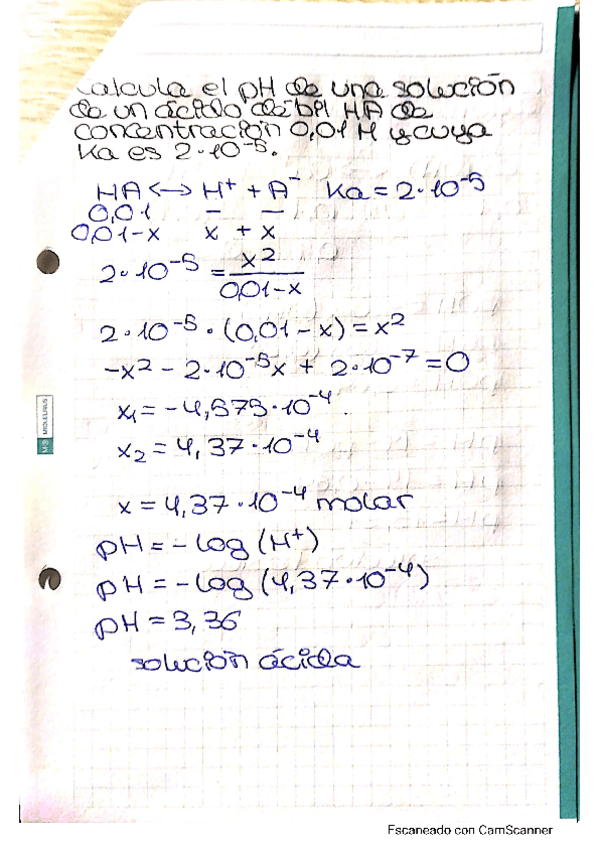 Calcula el pH de una solución
de un ácido débil HA de
concentración 0,01 M y cuya
Ka es 2·10⁻⁵.
HA <-> H⁺ + A⁻ Ka = 2·10⁻⁵
0,01 — —
0,01-x x + x
2·10⁻⁵ = x² / 0,01-x
2·10⁻⁵·(0,01-x) = x²
-x² - 2·10⁻⁵x + 2·10⁻⁷ = 0
x₁ = -4,575·10⁻⁴.
x₂ = 4,37·10⁻⁴
x = 4,37·10⁻⁴ molar
pH = -log (H⁺)
pH = -log (4,37·10⁻⁴)
pH = 3,36
solución ácida
MIQUELRIUS
Escaneado con CamScanner